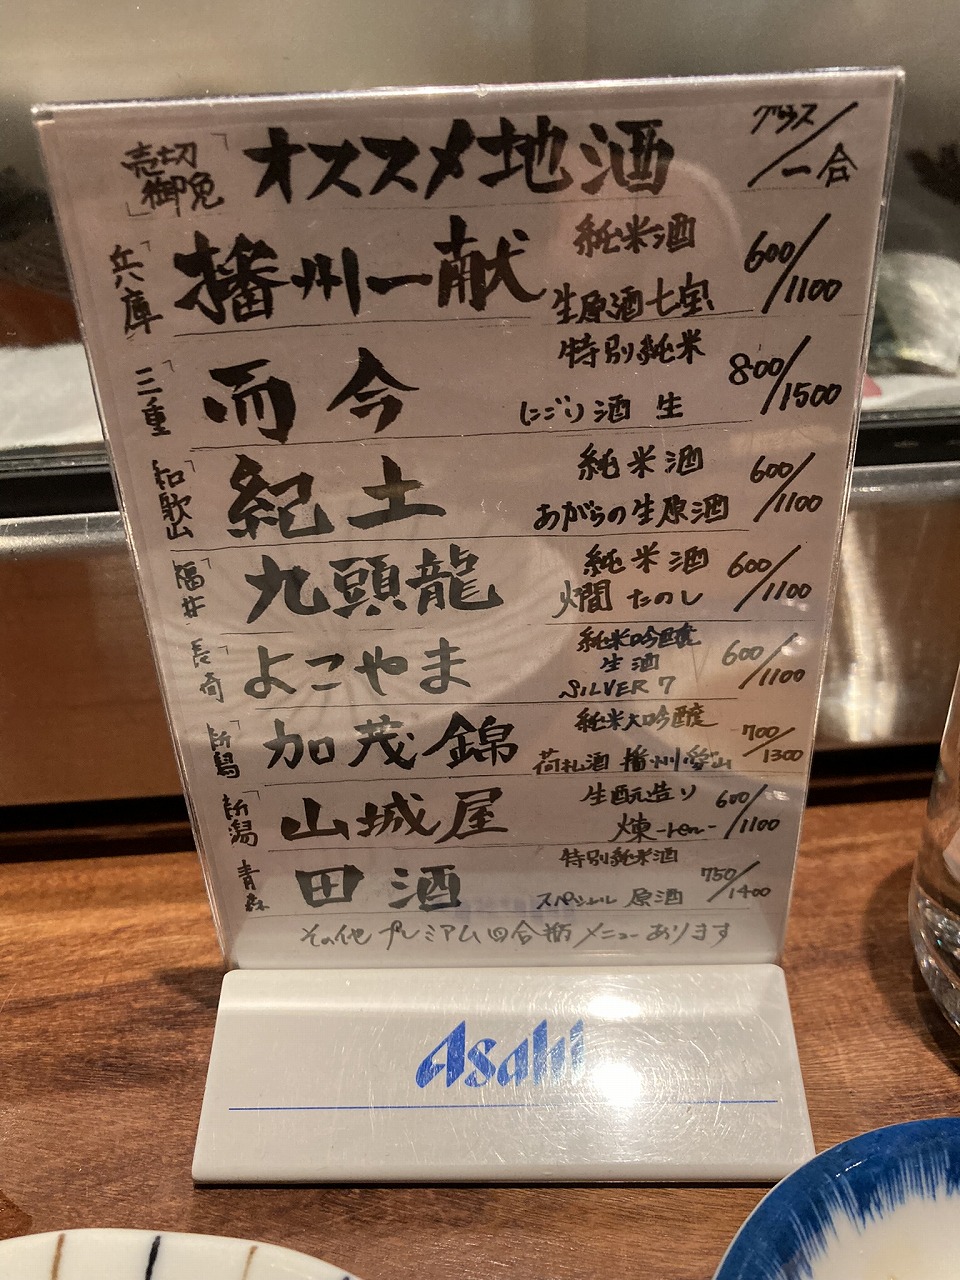 売切御免 オススメ地酒 グラス/一合
兵庫 播州一献 純米酒 生原酒七宝 600/1100
三重 而今 特別純米 にごり酒 生 800/1500
和歌山 紀土 純米酒 あがらの生原酒 600/1100
福井 九頭龍 純米酒 燗たのし 600/1100
長崎 よこやま 純米吟醸 生酒 SILVER 7 600/1100
新潟 加茂錦 純米大吟醸 荷札酒 播州愛山 700/1300
新潟 山城屋 生酛造り 煉-ren- 600/1100
青森 田酒 特別純米酒 スペシャル 原酒 750/1400
その他 プレミアム四合瓶 メニューあります
Asahi